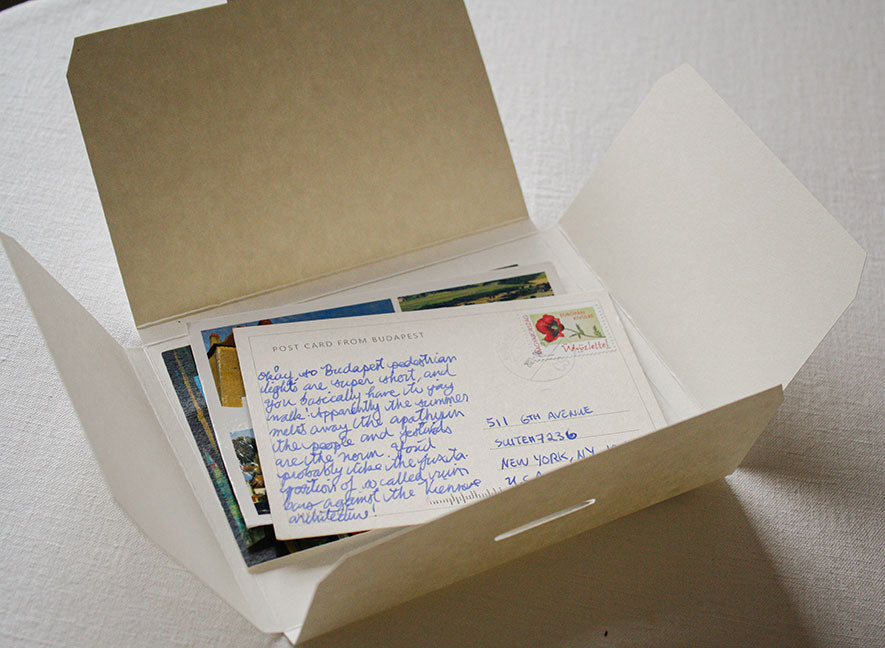 POST CARD FROM BUDAPEST
Okay so Budapest pedestrian
lights are super short, and
you basically have to jay
walk! Apparently the summer
melts away the apathy in
the people and festivals
are the norm. You'd
probably like the juxta-
position of so called ruin
bars against the
architecture!
Üdvözlettel
511 6TH AVENUE
SUITE#7236
NEW YORK, NY
U.S.A